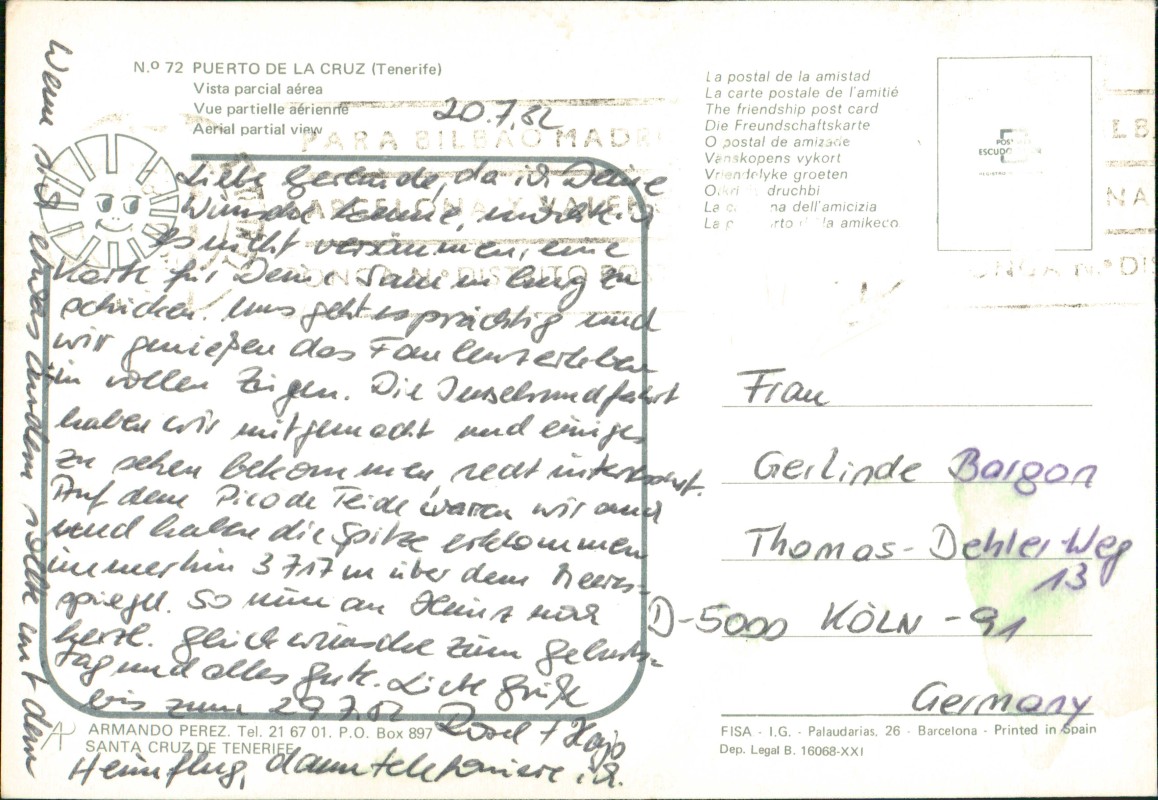 N.º 72 PUERTO DE LA CRUZ (Tenerife)
Vista parcial aérea
Vue partielle aérienne
Aerial partial view
20.7.82
PARA BILBAO MADRI
BARCELONA Y VALEN
PONGA N.º DISTRITO POS
Liebe Gerlinde, da ich Deine
Wünsche kenne, möchte ich
es nicht versäumen, eine
Karte für Deine Sammlung zu
schicken. Uns geht es prächtig und
wir genießen das Faulenzerleben
in vollen Zügen. Die Inselrundfahrt
haben wir mitgemacht und einiges
zu sehen bekommen, recht interessant.
Auf dem Pico de Teide waren wir auch
und haben die Spitze erklommen
immerhin 3717 m über dem Meeres-
spiegel. So nun an Heinz noch
herzl. Glückwünsche zum Geburts-
tag und alles Gute. Liebe Grüße
bis zum 29.7.82 Rosel + Hajo
Wenn sich etwas ändern sollte mit dem
Heimflug, dann telefoniere ich.
ARMANDO PEREZ. Tel. 21 67 01. P.O. Box 897
SANTA CRUZ DE TENERIFE
La postal de la amistad
La carte postale de l'amitié
The friendship post card
Die Freundschaftskarte
O postal de amizade
Vänskopens vykort
Vriendelyke groeten
druchbi
dell'amicizia
la amikeco
POS
ESCUDO
LB
NA
ONGA N.º DIS
Frau
Gerlinde Bargon
Thomas-Dehler-Weg
13
D-5000 KÖLN - 91
Germany
FISA - I.G. - Palaudarias, 26 - Barcelona - Printed in Spain
Dep. Legal B. 16068-XXI